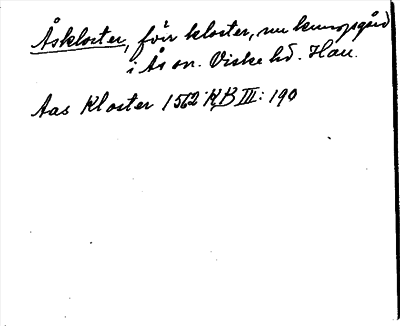 Åskloster, förr kloster, nu kungsgård
i Ås sn. Viske hd. Hall.
Aas Kloster 1562 KB III: 190